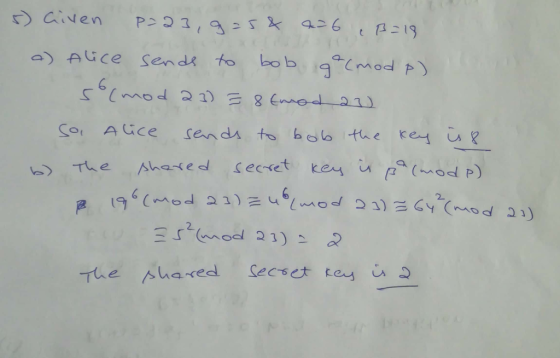 5) Given P=23, g=5 & a=6, β=19
a) Alice sends to bob g^a (mod P)
5^6 (mod 23) ≡ 8 (mod 23)
So, Alice sends to bob the key is 8
b) The shared secret key is β^a (mod P)
19^6 (mod 23) ≡ 4^6 (mod 23) ≡ 64^2 (mod 23)
≡ 5^2 (mod 23) = 2
The shared secret key is 2